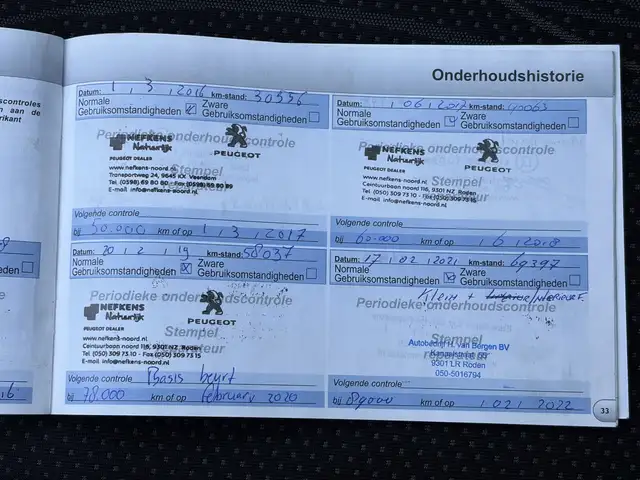 scontroles
en aan de
rikant
Onderhoudshistorie
Datum: 1 , 3 , 2016 km-stand: 30556
Normale Gebruiksomstandigheden
Zware Gebruiksomstandigheden
Periodieke onderhoudscontrole
NEFKENS
Natuurlijk
PEUGEOT
PEUGEOT DEALER
Stempel
www.nefkens-noord.nl
Transportweg 24, 9645 KX Veendam
Tel. (0598) 69 80 80 - Fax (0598) 69 80 89
E-mail info@nefkens-noord.nl
Volgende controle
bij 50.000 km of op 1 , 3 , 2017
Datum: , 06 , 2017 km-stand: 40063
Normale Gebruiksomstandigheden
Zware Gebruiksomstandigheden
Periodieke onderhoudscontrole
NEFKENS
Natuurlijk
PEUGEOT
PEUGEOT DEALER
Stempel
www.nefkens-noord.nl
Ceintuurbaan noord 116, 9301 NZ Roden
Tel. (050) 309 73 10 - Fax (050) 309 73 15
E-mail info@nefkens-noord.nl
Volgende controle
bij 60.000 km of op , 6 , 2018
Datum: 20 , 2 , 19 km-stand: 58037
Normale Gebruiksomstandigheden
Zware Gebruiksomstandigheden
Periodieke onderhoudscontrole
NEFKENS
Natuurlijk
PEUGEOT
PEUGEOT DEALER
Stempel
www.nefkens-noord.nl
Ceintuurbaan noord 116, 9301 NZ Roden
Tel. (050) 309 73 10 - Fax (050) 309 73 15
E-mail info@nefkens-noord.nl
Volgende controle Basis beurt
bij 78.000 km of op februari 2020
Datum: 17 , 02 , 2021 km-stand: 69397
Normale Gebruiksomstandigheden
Zware Gebruiksomstandigheden
Klein + INTERIEURF.
Periodieke onderhoudscontrole
Stempel
Autobedrijf H. van Bergen BV
9301 LR Roden
050-5016794
Volgende controle
bij 89000 km of op , 02 , 2022
33